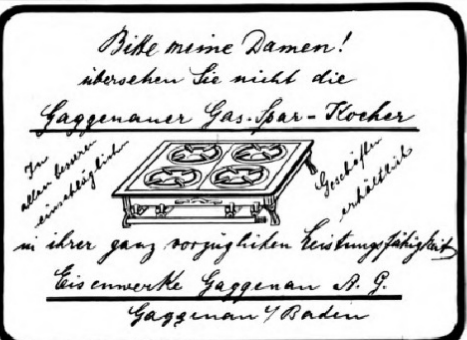 Bitte meine Damen!
übersehen Sie nicht die
Gaggenauer Gas-Spar-Kocher
In
allen besseren
einschläglich.
Geschäften
erhältlich
in ihrer ganz vorzüglichen Leistungsfähigkeit
Eisenwerke Gaggenau A. G.
Gaggenau i/Baden